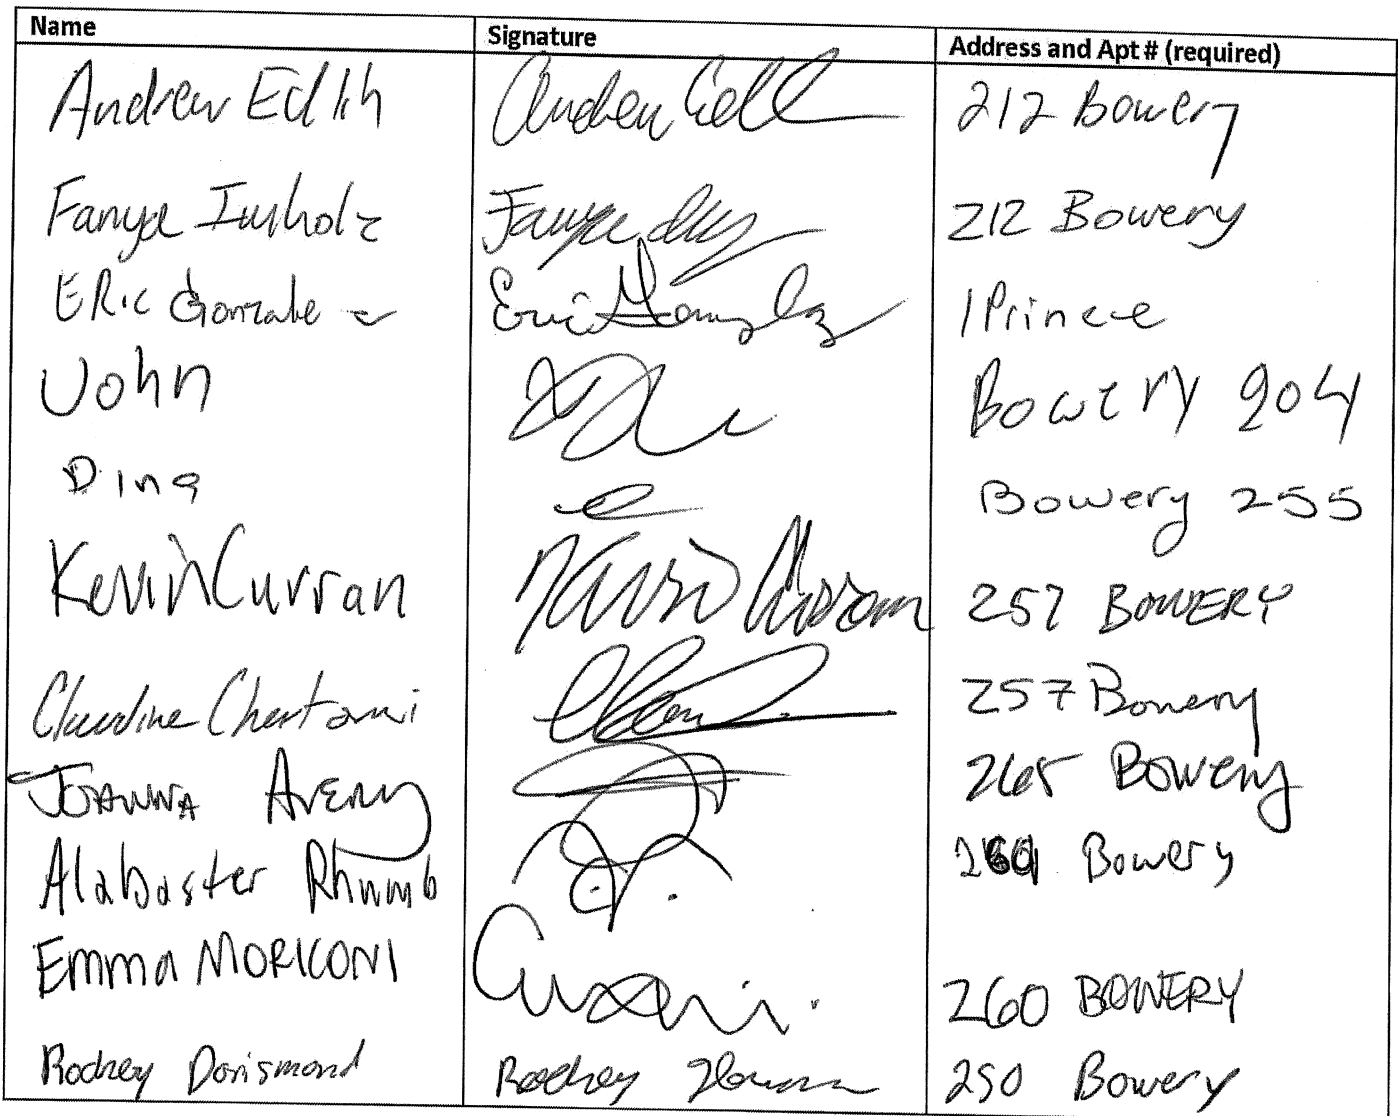 Name Signature Address and Apt # (required)
Andrew Edlih 212 Bowery
Fanya Imholz Fanya 212 Bowery
ERic Gonzalez Eric Gonzalez 1 Prince
John Bowery 204
Dina Bowery 255
Kevin Curran Kevin Curran 257 BOWERY
Claudine 257 Bowery
JOANNA AVERY 265 Bowery
Alabaster Rhumb Bowery
Emma MORICONI 260 BOWERY
Rodney Dorismond Rodney 250 Bowery